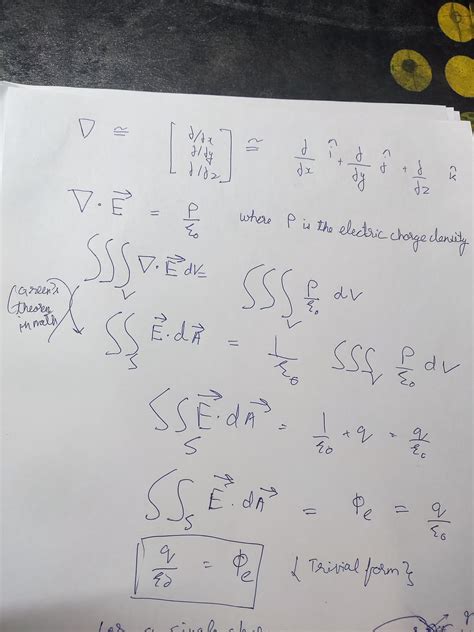 ∇ ≅ [ d/dx d/dy d/dz ] ≅ d/dx î + d/dy ĵ + d/dz k̂
∇ · E⃗ = ρ/ε₀ where ρ is the electric charge density
∭_V ∇ · E⃗ dV = ∭_V ρ/ε₀ dV
(Green's theorem in math)
∬_S E⃗ · dA⃗ = 1/ε₀ ∭_V ρ/ε₀ dV
∬_S E⃗ · dA⃗ = 1/ε₀ * q = q/ε₀
∬_S E⃗ · dA⃗ = ϕe = q/ε₀
q/ε₀ = ϕe {Trivial form}
for a single